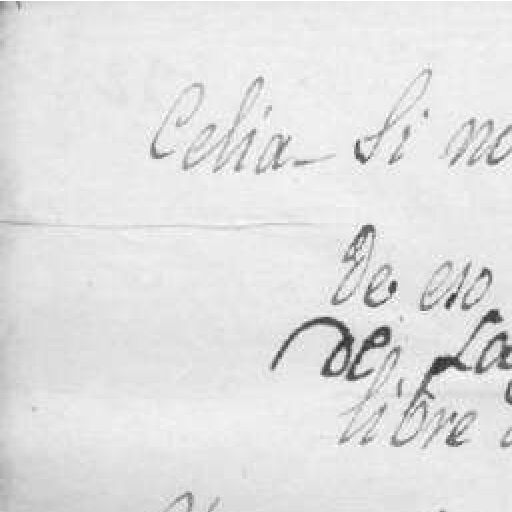 Celia - Si no
de eso
de La
libre